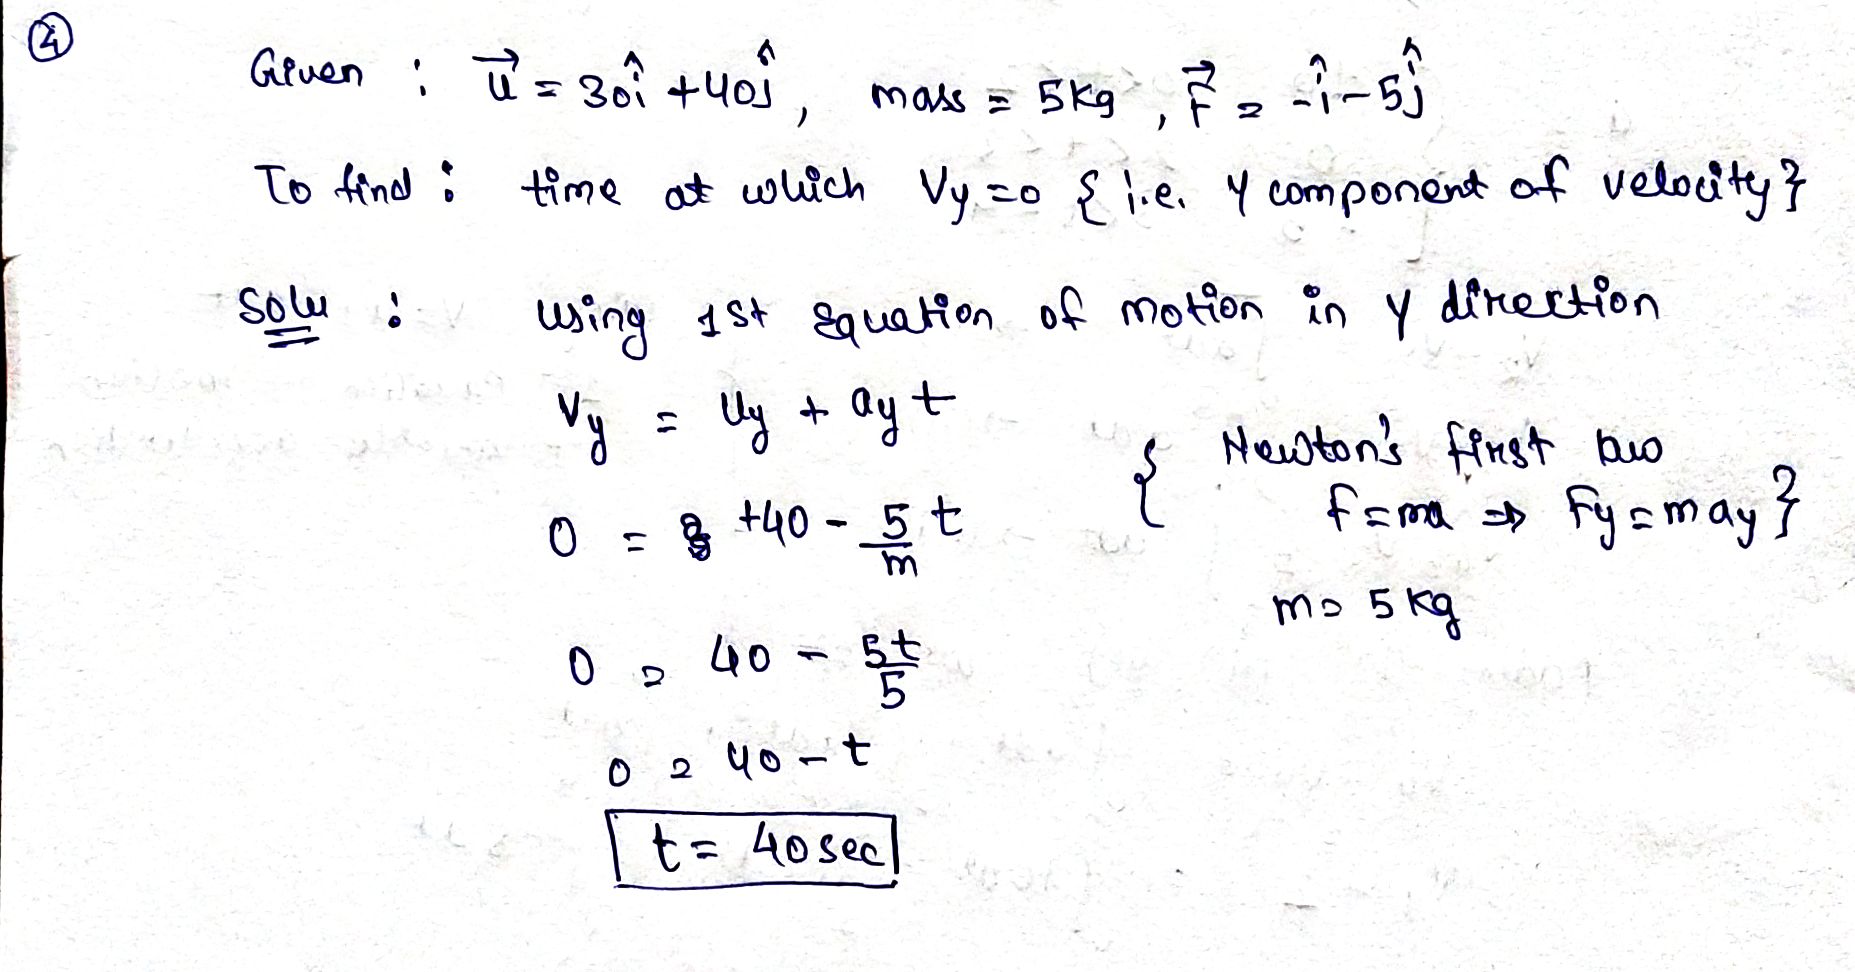 ④
Given : u⃗ = 30î + 40ĵ, mass = 5kg, F⃗ = -î-5ĵ
To find : time at which Vy=0 { i.e. Y component of velocity}
Solu : using 1st Equation of motion in Y direction
Vy = Uy + ay t
{ Newton's first law
F=ma ⇒ Fy=may }
0 = +40 - 5/m t
m = 5 kg
0 = 40 - 5t/5
0 = 40 - t
t = 40 sec